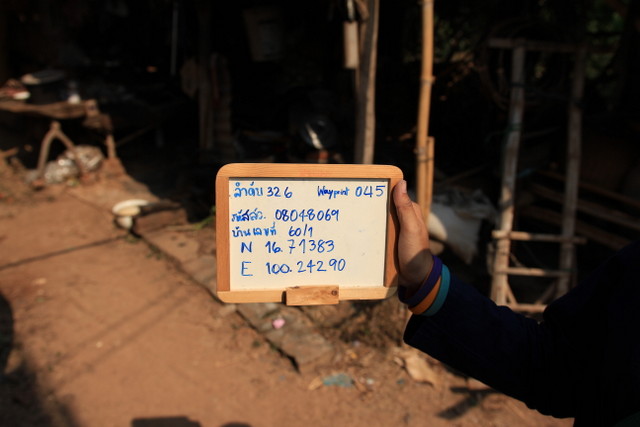 ลำดับ 326 Waypoint 045
รหัสสว. 08048069
บ้านเลขที่ 60/1
N 16.71383
E 100.24290